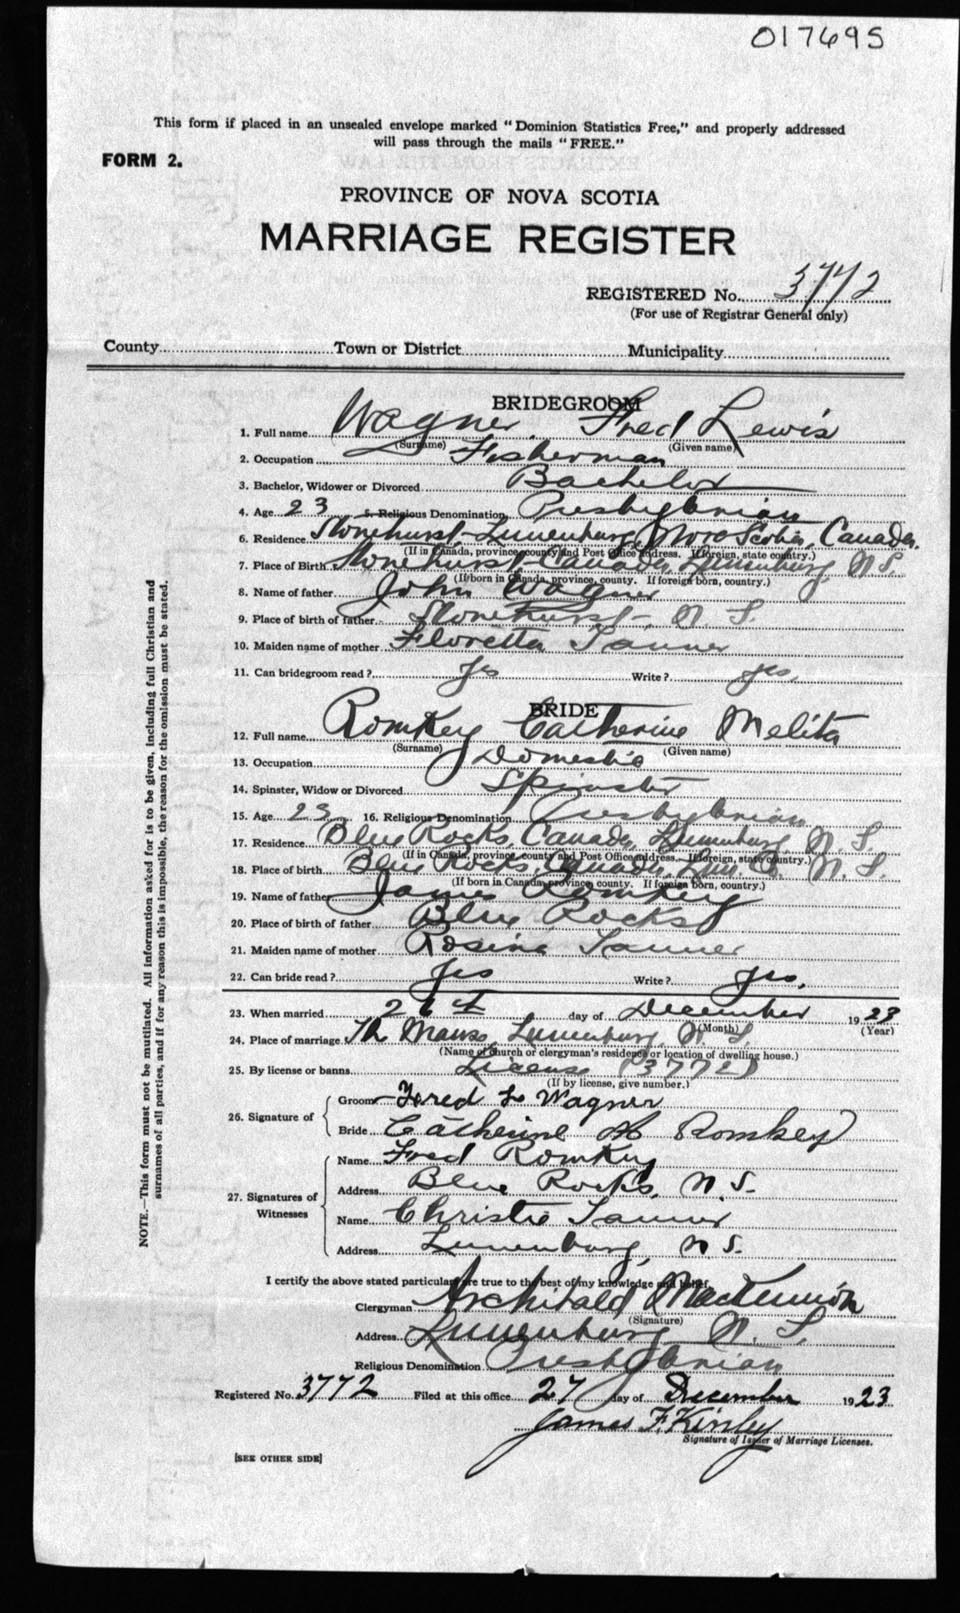 017695
This form if placed in an unsealed envelope marked "Dominion Statistics Free," and properly addressed
will pass through the mails "FREE."
FORM 2.
PROVINCE OF NOVA SCOTIA
MARRIAGE REGISTER
REGISTERED No. 3772
(For use of Registrar General only)
County Town or District Municipality
BRIDEGROOM
1. Full name Wagner Fred Lewis
(Surname) (Given name)
2. Occupation Fisherman
3. Bachelor, Widower or Divorced Bachelor
4. Age 23 5. Religious Denomination Presbyterian
6. Residence Stonehurst, Lunenburg, Nova Scotia, Canada.
(If in Canada, province, county and Post Office address. If foreign, state country.)
7. Place of Birth Stonehurst Canada, Lunenburg, N.S.
(If born in Canada, province, county. If foreign born, country.)
8. Name of father John Wagner
9. Place of birth of father Stonehurst, N. S.
10. Maiden name of mother Floretta Tanner
11. Can bridegroom read? Yes Write? yes.
BRIDE
12. Full name Romkey Catherine Melita
(Surname) (Given name)
13. Occupation Domestic
14. Spinster, Widow or Divorced Spinster
15. Age 23 16. Religious Denomination Presbyterian
17. Residence Blue Rocks, Canada, Lunenburg, N. S.
(If in Canada, province, county and Post Office address. If foreign, state country.)
18. Place of birth Blue Rocks, Canada, Lun. Co. N. S.
(If born in Canada province, county. If foreign born, country.)
19. Name of father James Romkey
20. Place of birth of father Blue Rocks
21. Maiden name of mother Rosina Tanner
22. Can bride read? Yes Write? yes.
23. When married 26th day of December 1923
(Month) (Year)
24. Place of marriage Th Manse, Lunenburg, N. S.
(Name of church or clergyman's residence or location of dwelling house.)
25. By license or banns License (3772)
(If by license, give number.)
26. Signature of
Groom Fred L Wagner
Bride Catherine M Romkey
27. Signatures of Witnesses
Name Fred Romkey
Address Blue Rocks, N.S.
Name Christie Tanner
Address Lunenburg, N S.
I certify the above stated particulars are true to the best of my knowledge and belief.
Clergyman Archibald MacKinnon
(Signature)
Address Lunenburg N. S.
Religious Denomination Presbyterian
Registered No. 3772 Filed at this office 27 day of December 1923
James F. Kinley
Signature of Issuer of Marriage Licenses.
[SEE OTHER SIDE]
NOTE.—This form must not be mutilated. All information asked for is to be given, including full Christian and
surnames of all parties, and if for any reason this is impossible, the reason for the omission must be stated.